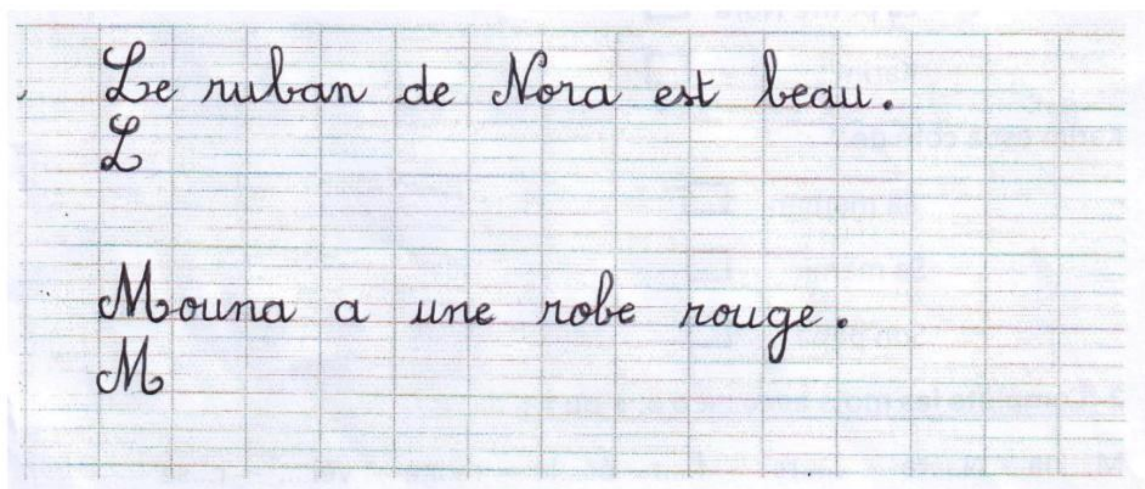 Le ruban de Nora est beau.
L
Mouna a une robe rouge.
M